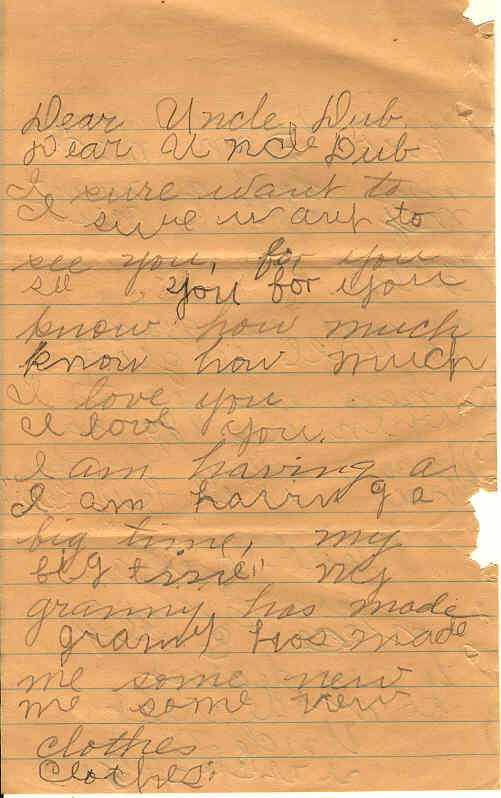 Dear Uncle Dub
Dear Uncle Dub
I sure want to
I sure want to
see you, for you
see you for you
know how much
know how much
I love you
I love you.
I am having a
I am having a
big time, my
big time, my
granny has made
granny has made
me some new
me some new
clothes
clothes.